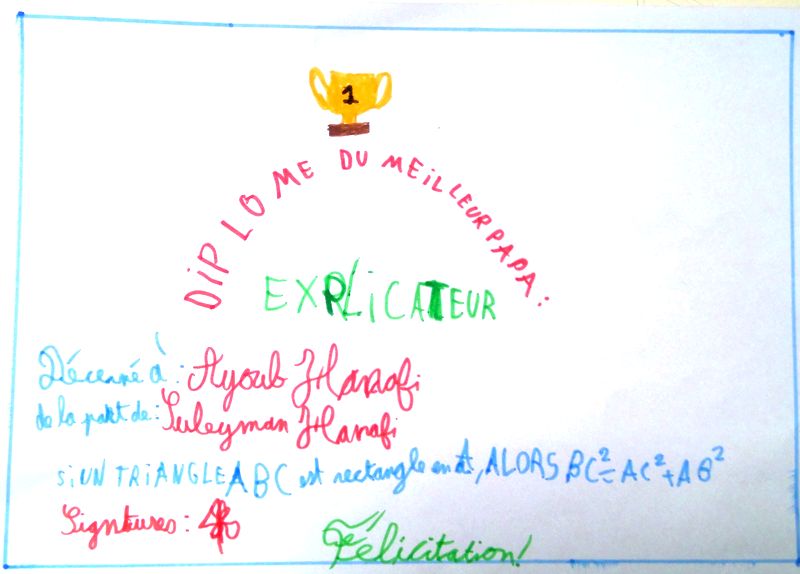 1
DiPLOME DU MEiLLEUR PAPA :
EXPLiCATEUR
Décerné à : Ayoub Hanafi
de la part de : Suleyman Hanafi
Si UN TRiANGLE ABC est rectangle en A, ALORS BC² = AC² + AB²
Signtures :
Félicitation!